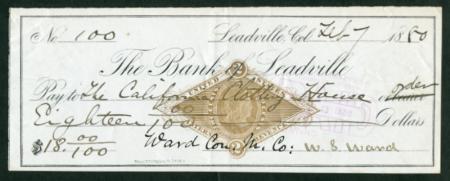 No 100 Leadville, Col. Feb 7 1880
The Bank of Leadville
Pay to The California Clothing House or order
Eighteen 00/100 Dollars
$18.00/100 Ward Con. M. Co: W. S. Ward